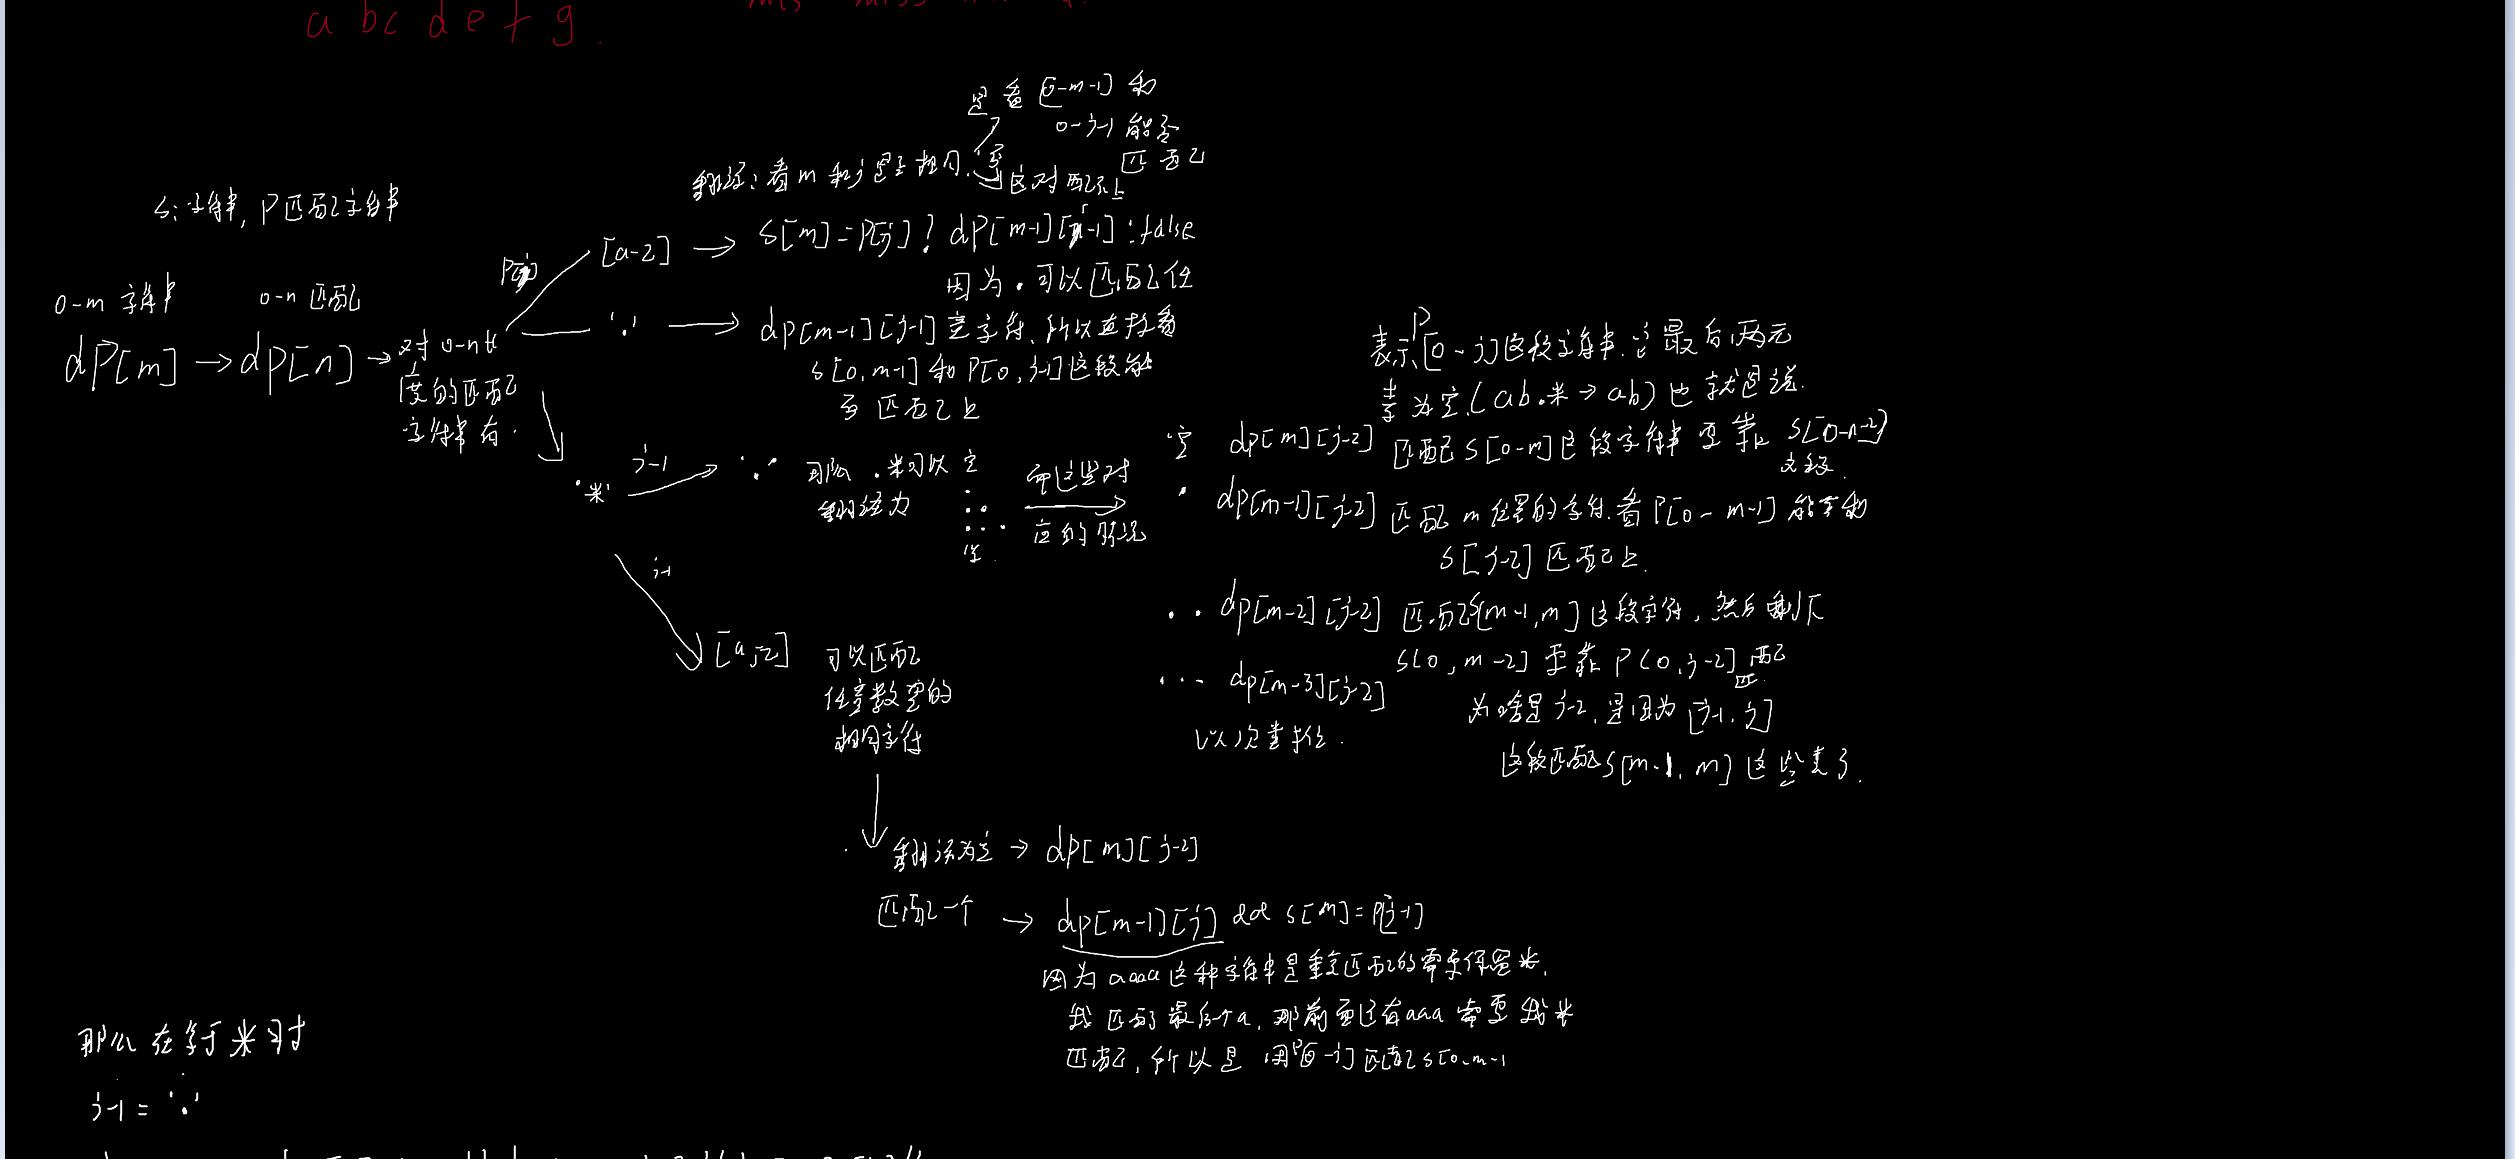 a b c d e f g .
是看 [0-m-1] 和
0-j-1 能否
匹配
翻译:看m和j是否相同.
这对配不上
S:字符串, P匹配字符串
P[j]
[a-z] → S[m]=P[j] ? dP[m-1][j-1] : false
0-m 字符串
0-n 匹配
dP[m] → dp[n] → 对 0-n长
度的匹配
字符串有.
'.' → dp[m-1][j-1]
因为 . 可以匹配任
意字符,所以直接看
S[0,m-1] 和 P[0,j-1]这段能
否匹配上
'*' j-1 → '.' 那么 .*可以
翻译为
空
.
..
...
而这些对
应的情况
P
表示[0-j]这段字符串.它最后两元
素为空.(ab.*→ab)也就是说.
空 dp[m][j-2] 匹配S[0-m]这段字符串要靠 S[0-n-2]
. dp[m-1][j-2] 匹配m位置的字符.看P[0-m-1]能否和
S[j-2]匹配上.
.. dp[m-2][j-2] 匹配S[m-1,m]这段字符,然后剩下
S[0,m-2]要靠P[0,j-2]匹配
... dp[m-3][j-2]
为啥是j-2,是因为[j-1,j]
以次类推.
这段匹配S[m-1,m]这些去了.
j-1
[a,z] 可以匹配
任意数量的
相同字符
翻译为空 → dp[m][j-2]
匹配一个 → dp[m-1][j] && S[m]=P[j-1]
因为aaaa这种字符串是重复匹配的需要保留*.
我匹配了最后个a,那前面还有aaa需要我*
匹配,所以是用P[0-j]匹配S[0,m-1
那么在等于*时
j-1 = '.'